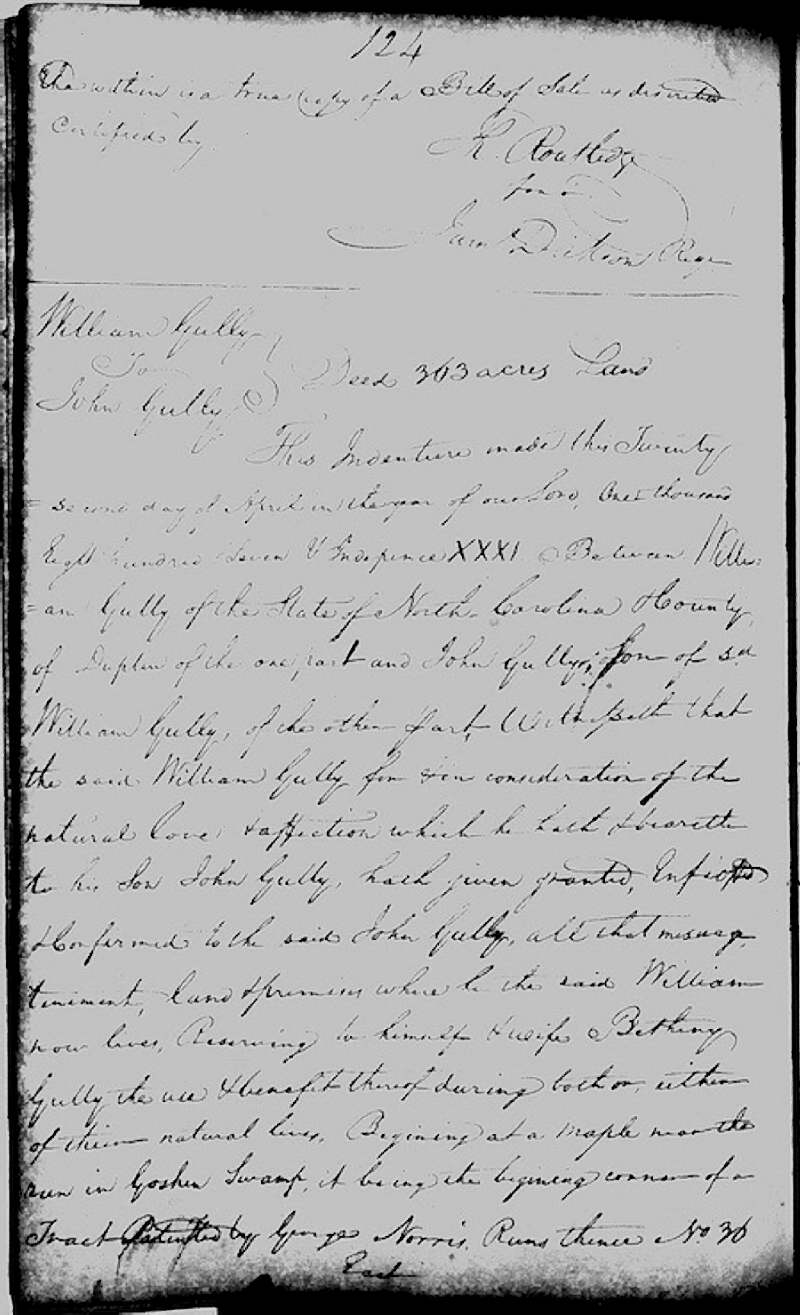 124
The within is a true Copy of a Bill of Sale as
Certified by
Routledge
for
Dickson Regr
William Gully
To
John Gully
Deed 363 acres Land
This Indenture made this Twenty
= second day of April in the year of our Lord, One thousand
Eight hundred Seven & XXXI Between Willi=
=am Gully of the State of North Carolina & County
of Duplin of the one part and John Gully, Son of sd
William Gully, of the other part, Witnesseth that
the said William Gully for & in consideration of the
natural love & affection which he hath & beareth
to his Son John Gully, hath given granted,
& Confirmed to the said John Gully, all that
teniment, land & premises where he the said William
now lives, Reserving to himself & wife Betheny
Gully the use & benefit thereof during both or either
of their natural lives, Begining at a maple near the
run in Goshen Swamp, it being the begining corner of a
Tract Patented by George Norris. Runs thence No 36
East